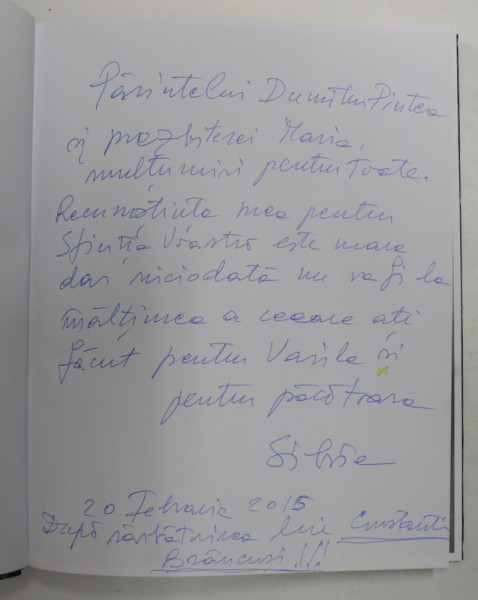 Părintelui Dumitru Pintea
și prezbiterei Maria,
mulțumiri pentru toate.
Recunoștința mea pentru
Sfinția Voastră este mare
dar niciodată nu va fi la
înălțimea a ceeace ați
făcut pentru Vasile și
pentru păcătoasa
Silvia
20 Februarie 2015
După sărbătorirea lui Constantin
Brâncuși!!!